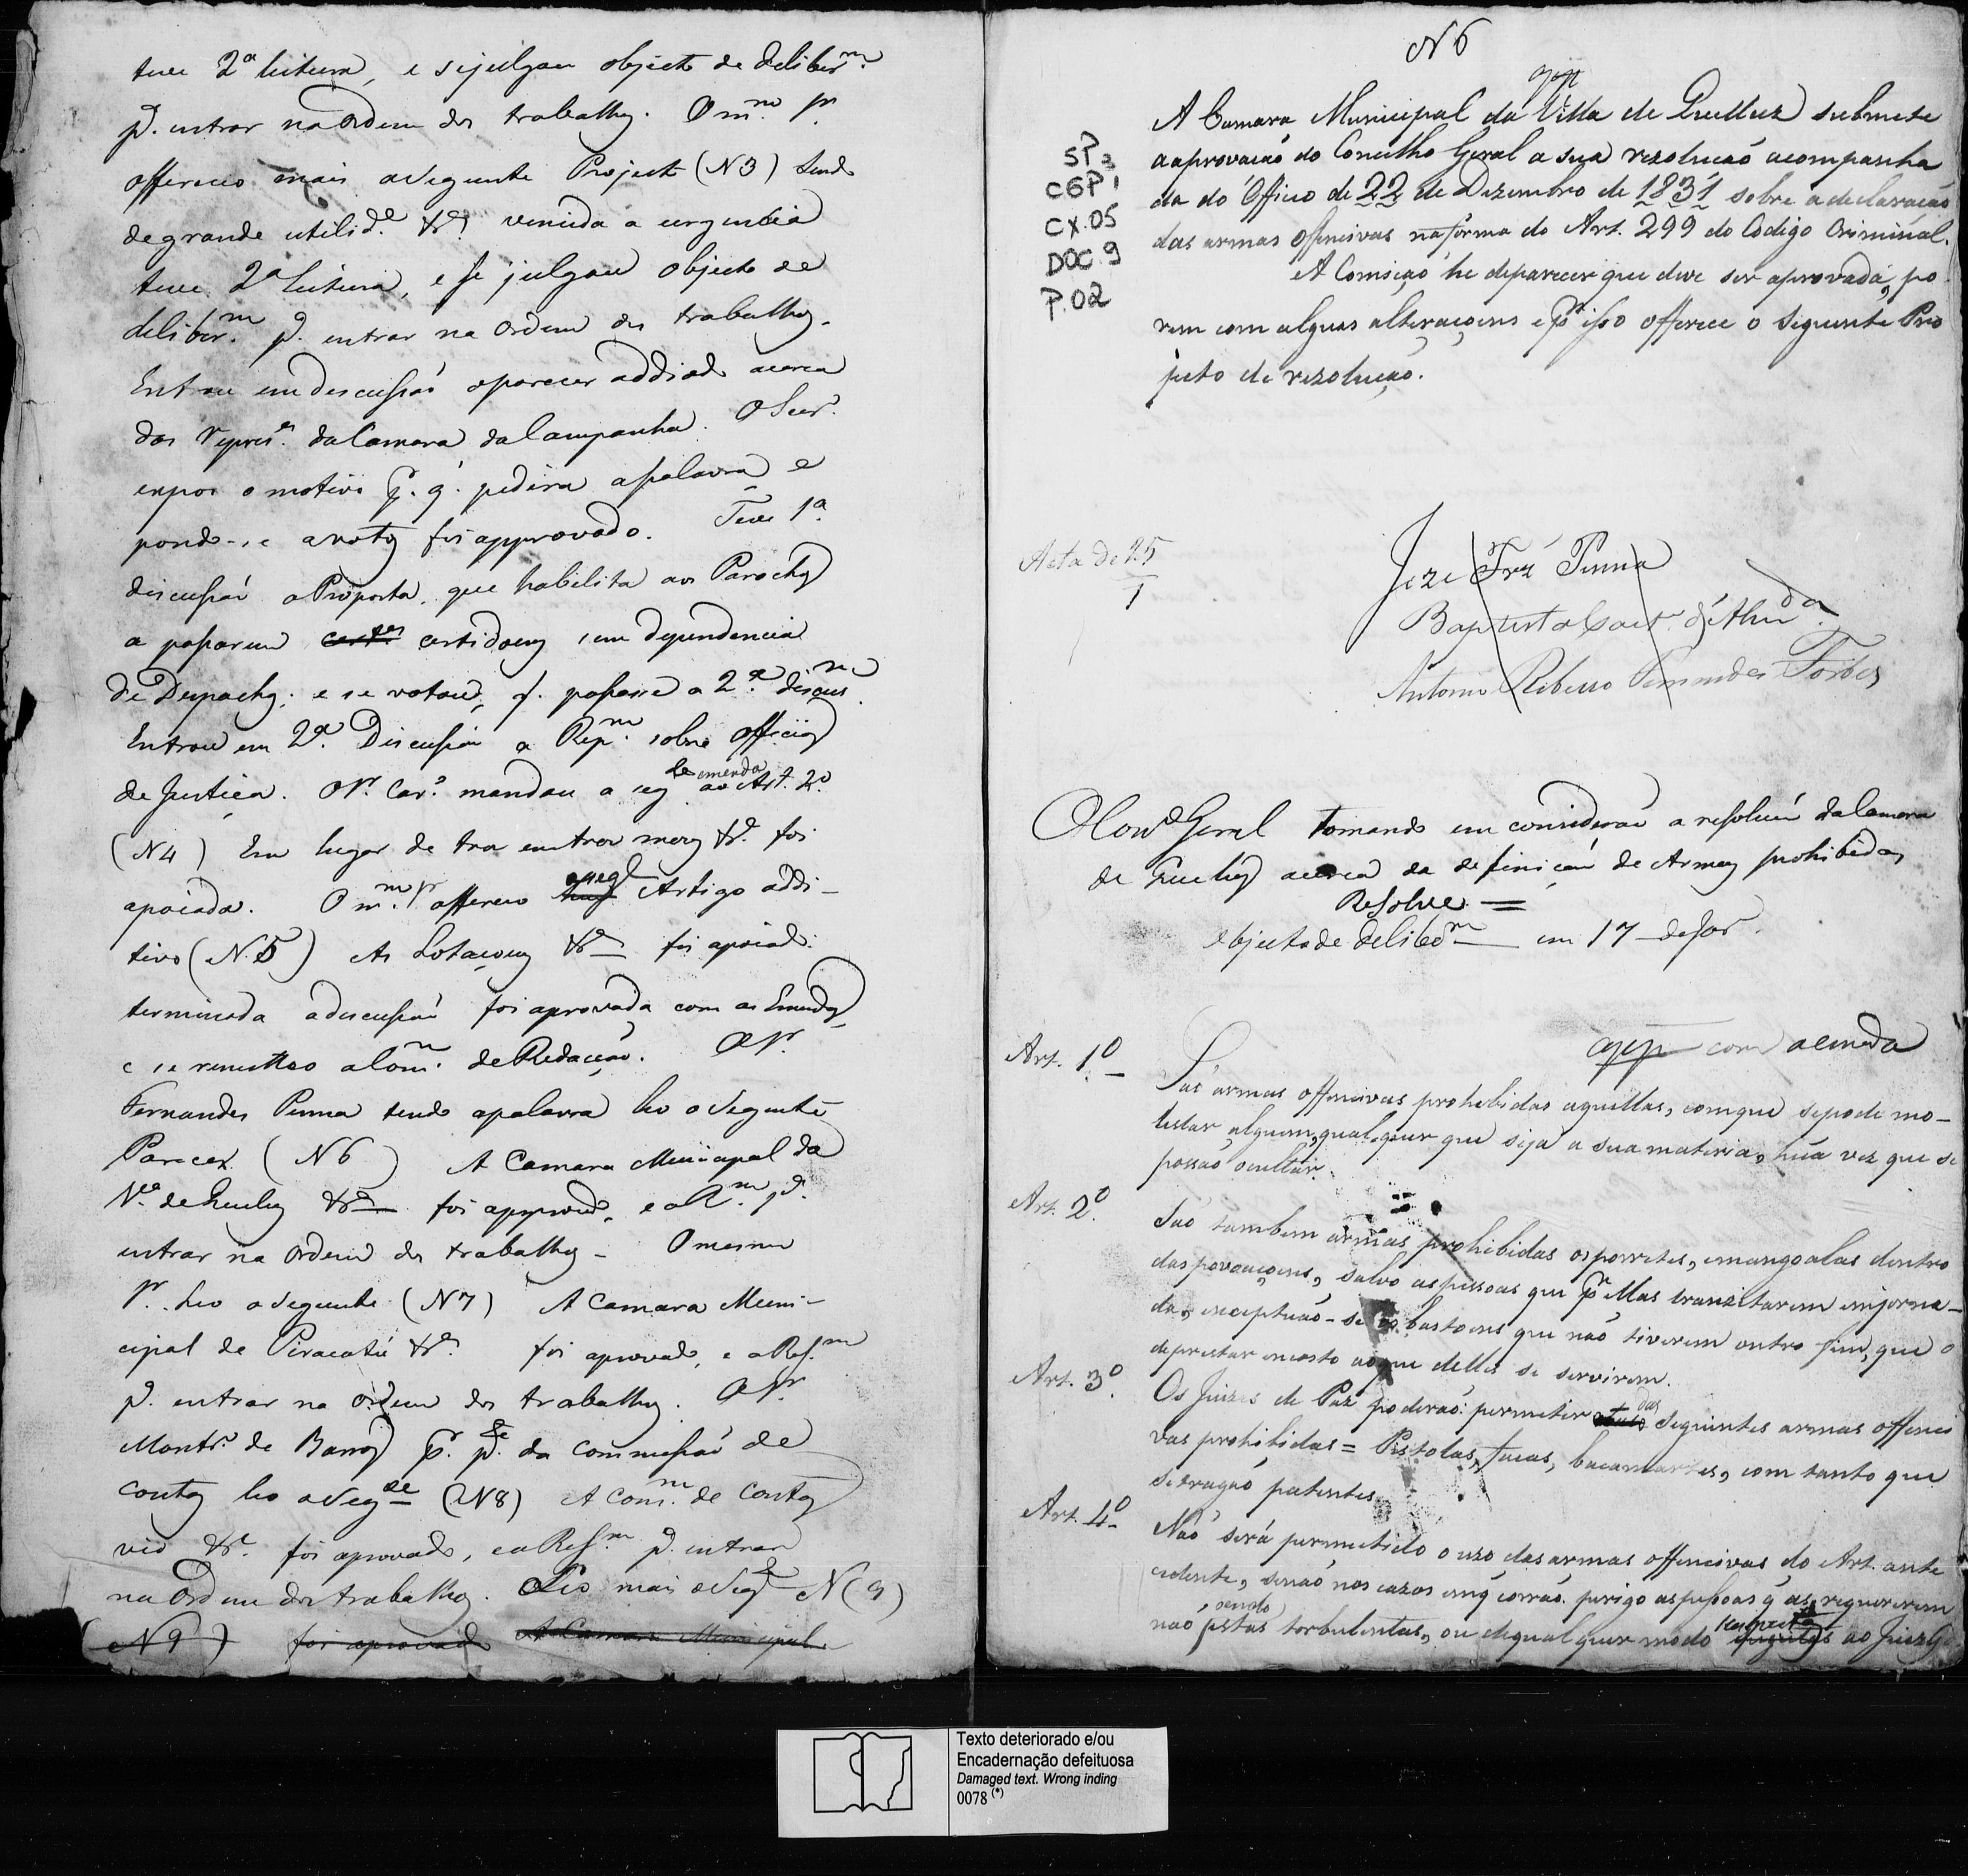 teve 2ª leitura, e se julgou objecto de deliber.m
p.ª entrar na Ordem dos trabalhos. O m.mo Sr.
offereceo mais o seguinte Projecto (N3) Sendo
de grande utilid.e &.ª vencida a urgencia
teve 2ª leitura, e se julgou objecto de
deliber.m p.ª entrar na Ordem dos trabalhos.
Entrou em discussão o parecer addiado acerca
das Repres.es da Camara da Campanha. O Secr.
expoz o motivo p.r q. pedira a palavra e
pondo-se a votos foi approvado. Teve 1ª
discussão a Proposta, que habilita aos Parochos
a passarem certidoens sem dependencia
de Despachos; e se votou, q. passasse a 2.ª discus.m
Entrou em 2ª Discussão a Rep.m sobre Officios
de Justiça. O Sr. Car.º mandou a seg.te emenda ao Art. 2º
(N4) Em lugar de tres mezes &.ª foi
apoiada. O m.mo Sr. offereceo o seg.e Artigo addi-
tivo (N.5) As Lotaçoens &.ª foi apoiado.
terminada a discussão foi aprovada com as Emendas,
e se remetteo a Com.m de Redacção. O Sr.
Fernandes Penna tendo a palavra leo o seguinte
Parecer (N6) A Camara Municipal da
V.ª de Queluz &.ª foi approvado, e a R.m p.ª
entrar na Ordem dos trabalhos - O mesmo
Sr. Leo o seguinte (N7) A Camara Muni-
cipal de Piracatú &.ª foi aprovado, e a Res.m
p.ª entrar na Ordem dos trabalhos. O Sr.
Montr.º de Barros p.r p.te da Commissão de
contas leo o seg.te (N8) A Com.m de Contas
vio &.ª foi aprovado, e a Res.m p.ª entrar
na Ordem dos trabalhos. Leo mais o seg.e N(9)
(N9) foi aprovado A Camara Municipal
N6
app
A Camara Municipal da Villa de Queluz submete
a aprovação do Concelho Geral a sua rezolução acompanha
da do Officio de 22 de Dezembro de 1831 sobre a declaração
das armas offencivas na forma do Art. 299 do Codigo Criminal.
A Comissão he de parecer que deve ser aprovada, po
rem com alguas alteraçoens e p.r isso offerece o Seguinte Pro
jecto de rezolução.
SP
CGP 1
CX.05
DOC 9
P.02
Acta de 25
1
Joze Frz Penna
Baptista Caet.º d'Almd.a
Antonio Ribeiro Fernandes Forbes
O Con.º Geral tomando em consideração a resolução da Camara
de Queluz acerca da definição de Armas prohibidas
Resolve =
Objecto de deliber.m em 17 de Jar.
app com a emenda
Art. 1º Saõ armas offencivas prohebidas aquellas, com que se pode mo-
lestar alguem, qualquer que seja a sua materia, hua vez que se
possão ocultar.
Art. 2º Saõ tambem armas prohibidas os porretes, e mangoalas dentro
das povoaçoens, salvo as pessoas que p.r ellas tranzitarem em jorna-
da, exceptuão-se os bastoens que não tiverem outro fim, que o
de prestar encosto ao que delles se servirem.
Art. 3º Os Juizes de Paz poderaõ permetir das Seguintes armas offenci
vas prohibidas = Pistolas, facas, bacamartes, com tanto que
se tragaõ patentes.
Art. 4º Não será permetido o uzo das armas offencivas do Art. ante
cedente, senaõ nos cazos em q corraõ perigo as pessoas q as requererem
não sendo estas torbulentas, ou de qualquer modo suspeitas ao Juiz
Texto deteriorado e/ou
Encadernação defeituosa
Damaged text. Wrong inding
0078 (*)